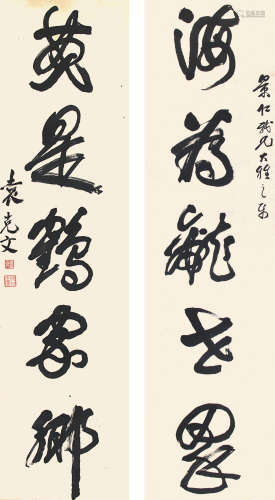 景仁我兄大雅之
海為龍世界
是鶴家鄉
袁克文